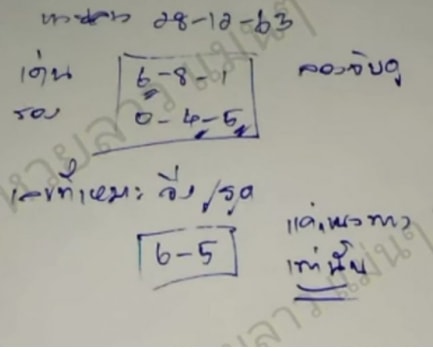 หวยลาว 28-12-63
เด่น 6-8-1 ลองจับคู่
รอง 0-4-5
เลขที่เหมาะ วิ่ง/รูด
6-5
แค่แนวทาง
เท่านั้น
หวยลาว แม่นๆ